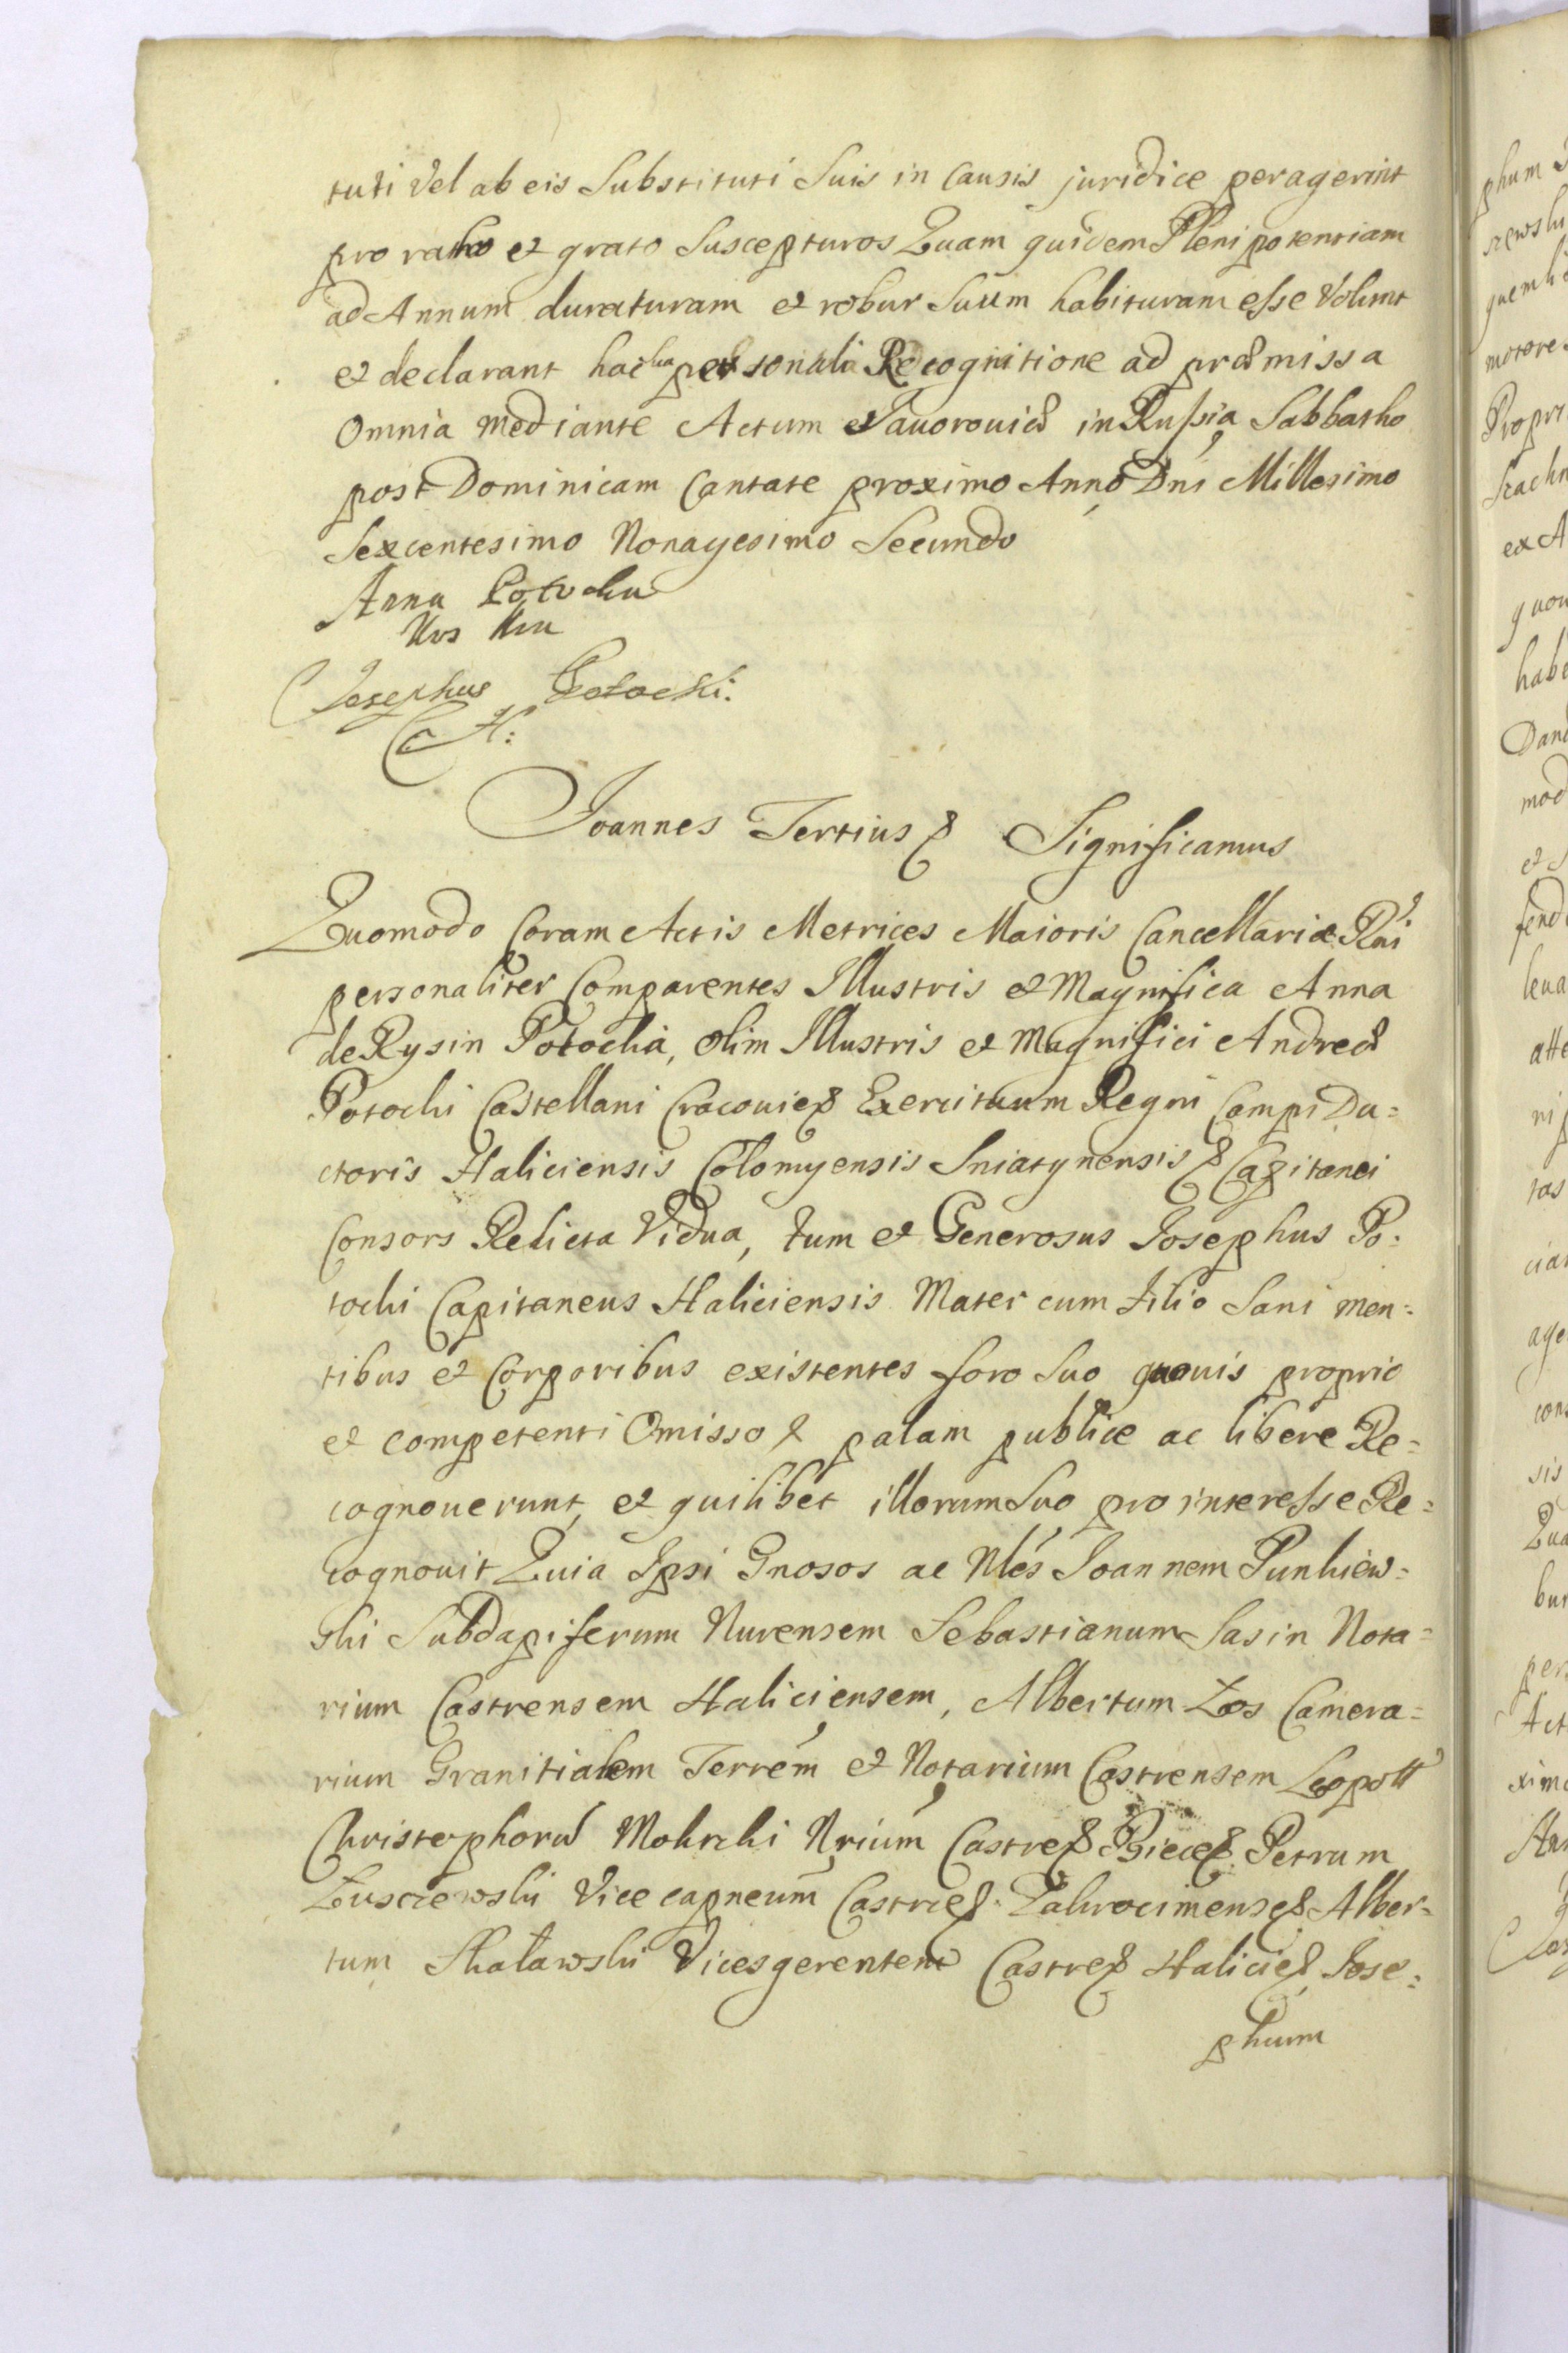 tuti vel ab eis Substituti Suis in Causis juridice peragerint
pro ratho et grato Suscepturos Quam quidem Plenipotentiam
ad Annum duraturam et robur Suum habituram esse Volunt
et declarant hac sua personali Recognitione ad præmissa
Omnia mediante Actum Javoroviæ in Russia Sabbatho
post Dominicam Cantate proximo Anno Dni Millesimo
Sexcentesimo Nonagesimo Secundo
Anna Potocka
Josephus Potocki:
C H:
Joannes Tertius & Significamus
Quomodo Coram Actis Metrices Maioris Cancellariæ Rni
personaliter Comparentes Illustris et Magnifica Anna
de Rysin Potocka, olim Illustris et Magnifici Andreæ
Potocki Castellani Cracovien Exercituum Regni Campi Du=
ctoris Haliciensis Colomyensis Sniatynensis & Capitanei
Consors Relicta Vidua, tum et Generosus Josephus Po=
tocki Capitaneus Haliciensis Mater cum filio Sani men=
tibus et Corporibus existentes foro Suo quovis proprio
et competenti Omisso & palam publice ac libere Re=
cognoverunt, et quilibet illorum Suo pro interesse Re=
cognovit Quia Ipsi Gnosos ac Nlés Joannem Punkiew=
ski Subdapiferum Nurensem Sebastianum Sasin Nota=
rium Castrensem Haliciensem, Albertum Łos Camera=
rium Granitialem Terrém et Notarium Castrensem Leopoll
Christophorū Mokrski Nrium Castren Biecen Petrum
Łusczewski Vice capneum Castren Zakrocimensem Alber=
tum Skaławski Vicesgerentem Castren Halicien Jose=
phum